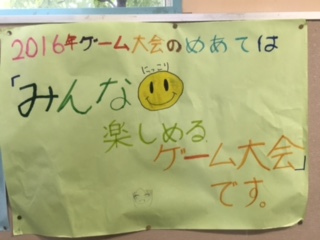 2016年ゲーム大会のめあては
にっこり
「みんな
楽しめる
ゲーム大会」
です。